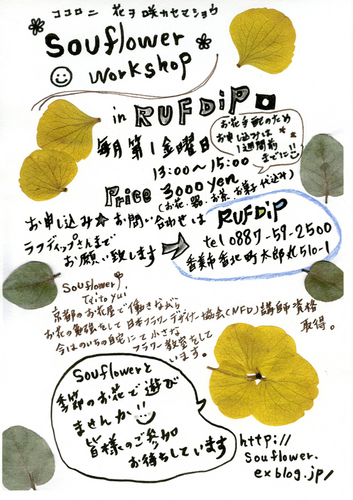 ココロニ 花ヲ咲カセマショウ
Souflower
workshop
in RUFDiP
毎月第1金曜日
13:00〜15:00
お花手配のため
お申し込みは
1週間前
までに
Price 3000yen
(お花・器・お茶・お菓子代込み)
お申し込み☆お問い合わせは
ラフディップさんまで
お願い致します
RUFDiP
tel 0887-57-2500
香美市香北町太郎丸510-1
Souflower
京都のお花屋で働きながら
お花の勉強をして日本フラワーデザイナー協会(NFD)講師資格
取得。
今はのいちの自宅にて小さな
フラワー教室をして
います。
Souflowerと
季節のお花で遊び
ませんか
皆様のご参加
お待ちしています
http://
souflower.
exblog.jp/